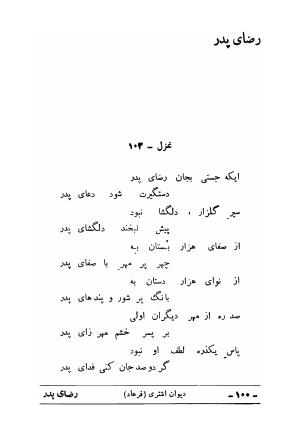 رضای پدر
غزل - ۱۰۳
ایکه جستی بجان رضای پدر
دستگیرت شود دعای پدر
سیر گلزار ، دلگشا نبود
پیش لبخند دلگشای پدر
از صفای هزار بُستان به
چهر پر مهر با صفای پدر
از نوای هزار دستان به
بانگ پر شور و پندهای پدر
صد ره از مهر دیگران اولی
بر پسر خشم مهر زای پدر
پاس یکذره لطف او نبود
گر دوصد جان کنی فدای پدر
- ۱۰۰ - دیوان اشتری (فرهاد) رضای پدر